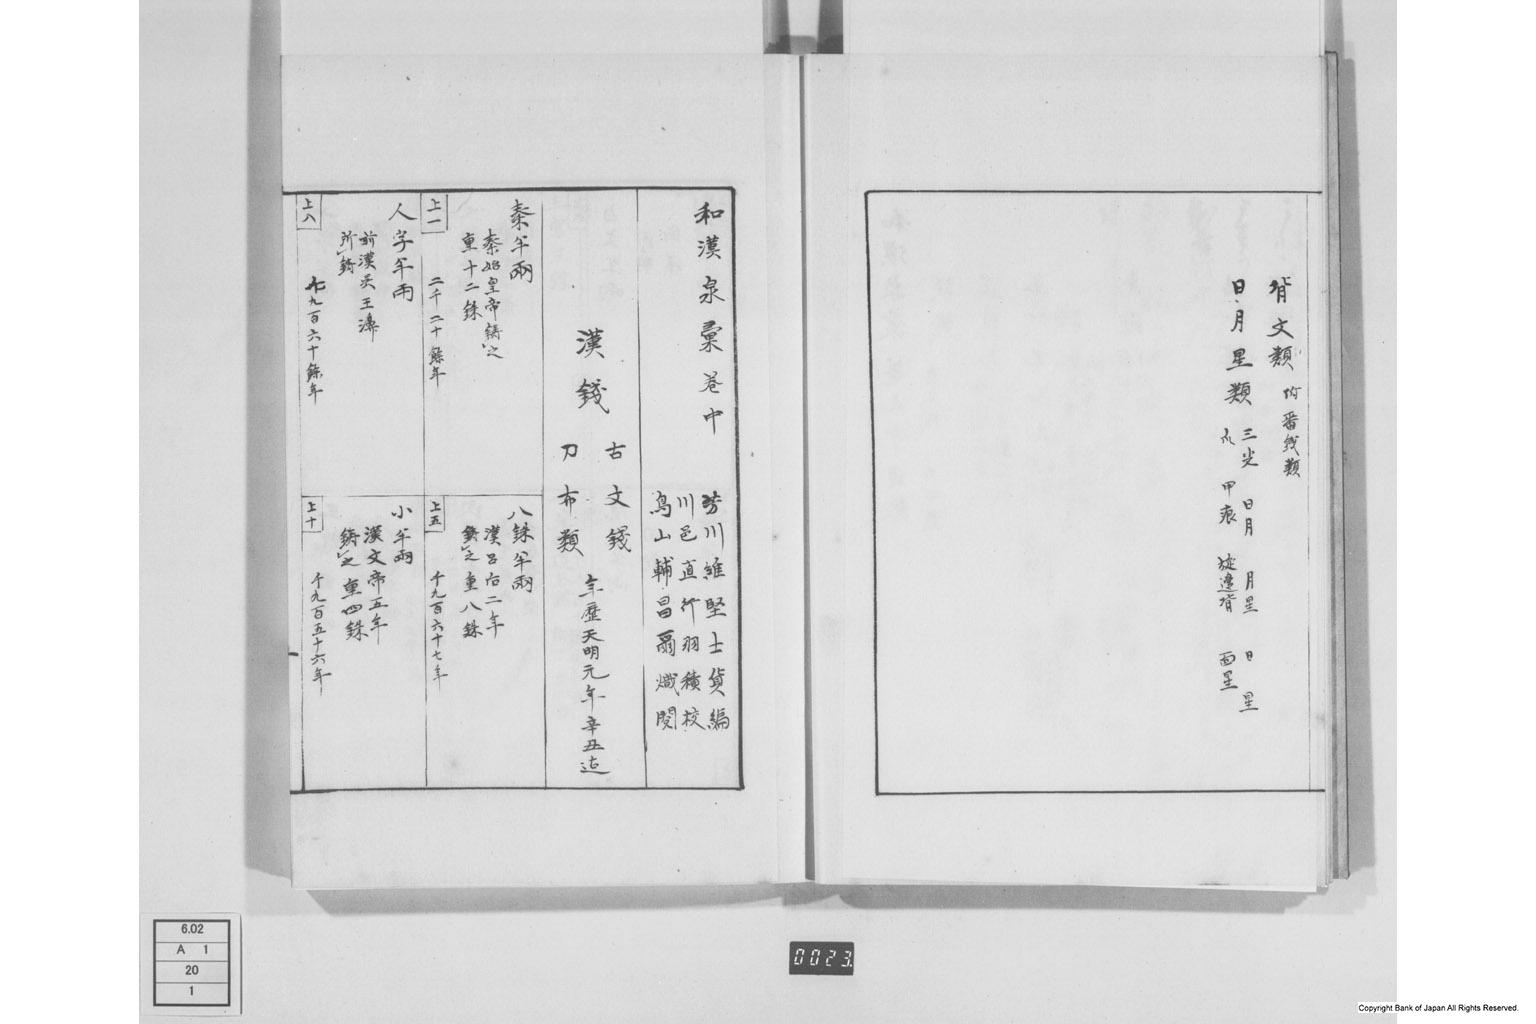 背文類 附番銭類
日月星類 三光 日月 月星 日星
爪 甲痕 旋邊背 面星
和漢泉彙巻中
芳川維堅士貨編
川邑直行羽積校
鳥山輔昌爾熾閲
漢錢
古文錢
刀布類
年歴天明元年辛丑迄
秦半兩
秦始皇帝鋳之
重十二銖
上一
二千二十餘年
八銖半兩
漢呂后二年
鋳之重八銖
上五
千九百六十七年
人字半両
前漢呉王濞
所鋳
上八
千九百六十餘年
小半兩
漢文帝五年
鋳之重四銖
上十
千九百五十六年
6.02
A 1
20
1
0023
Copyright Bank of Japan All Rights Reserved.